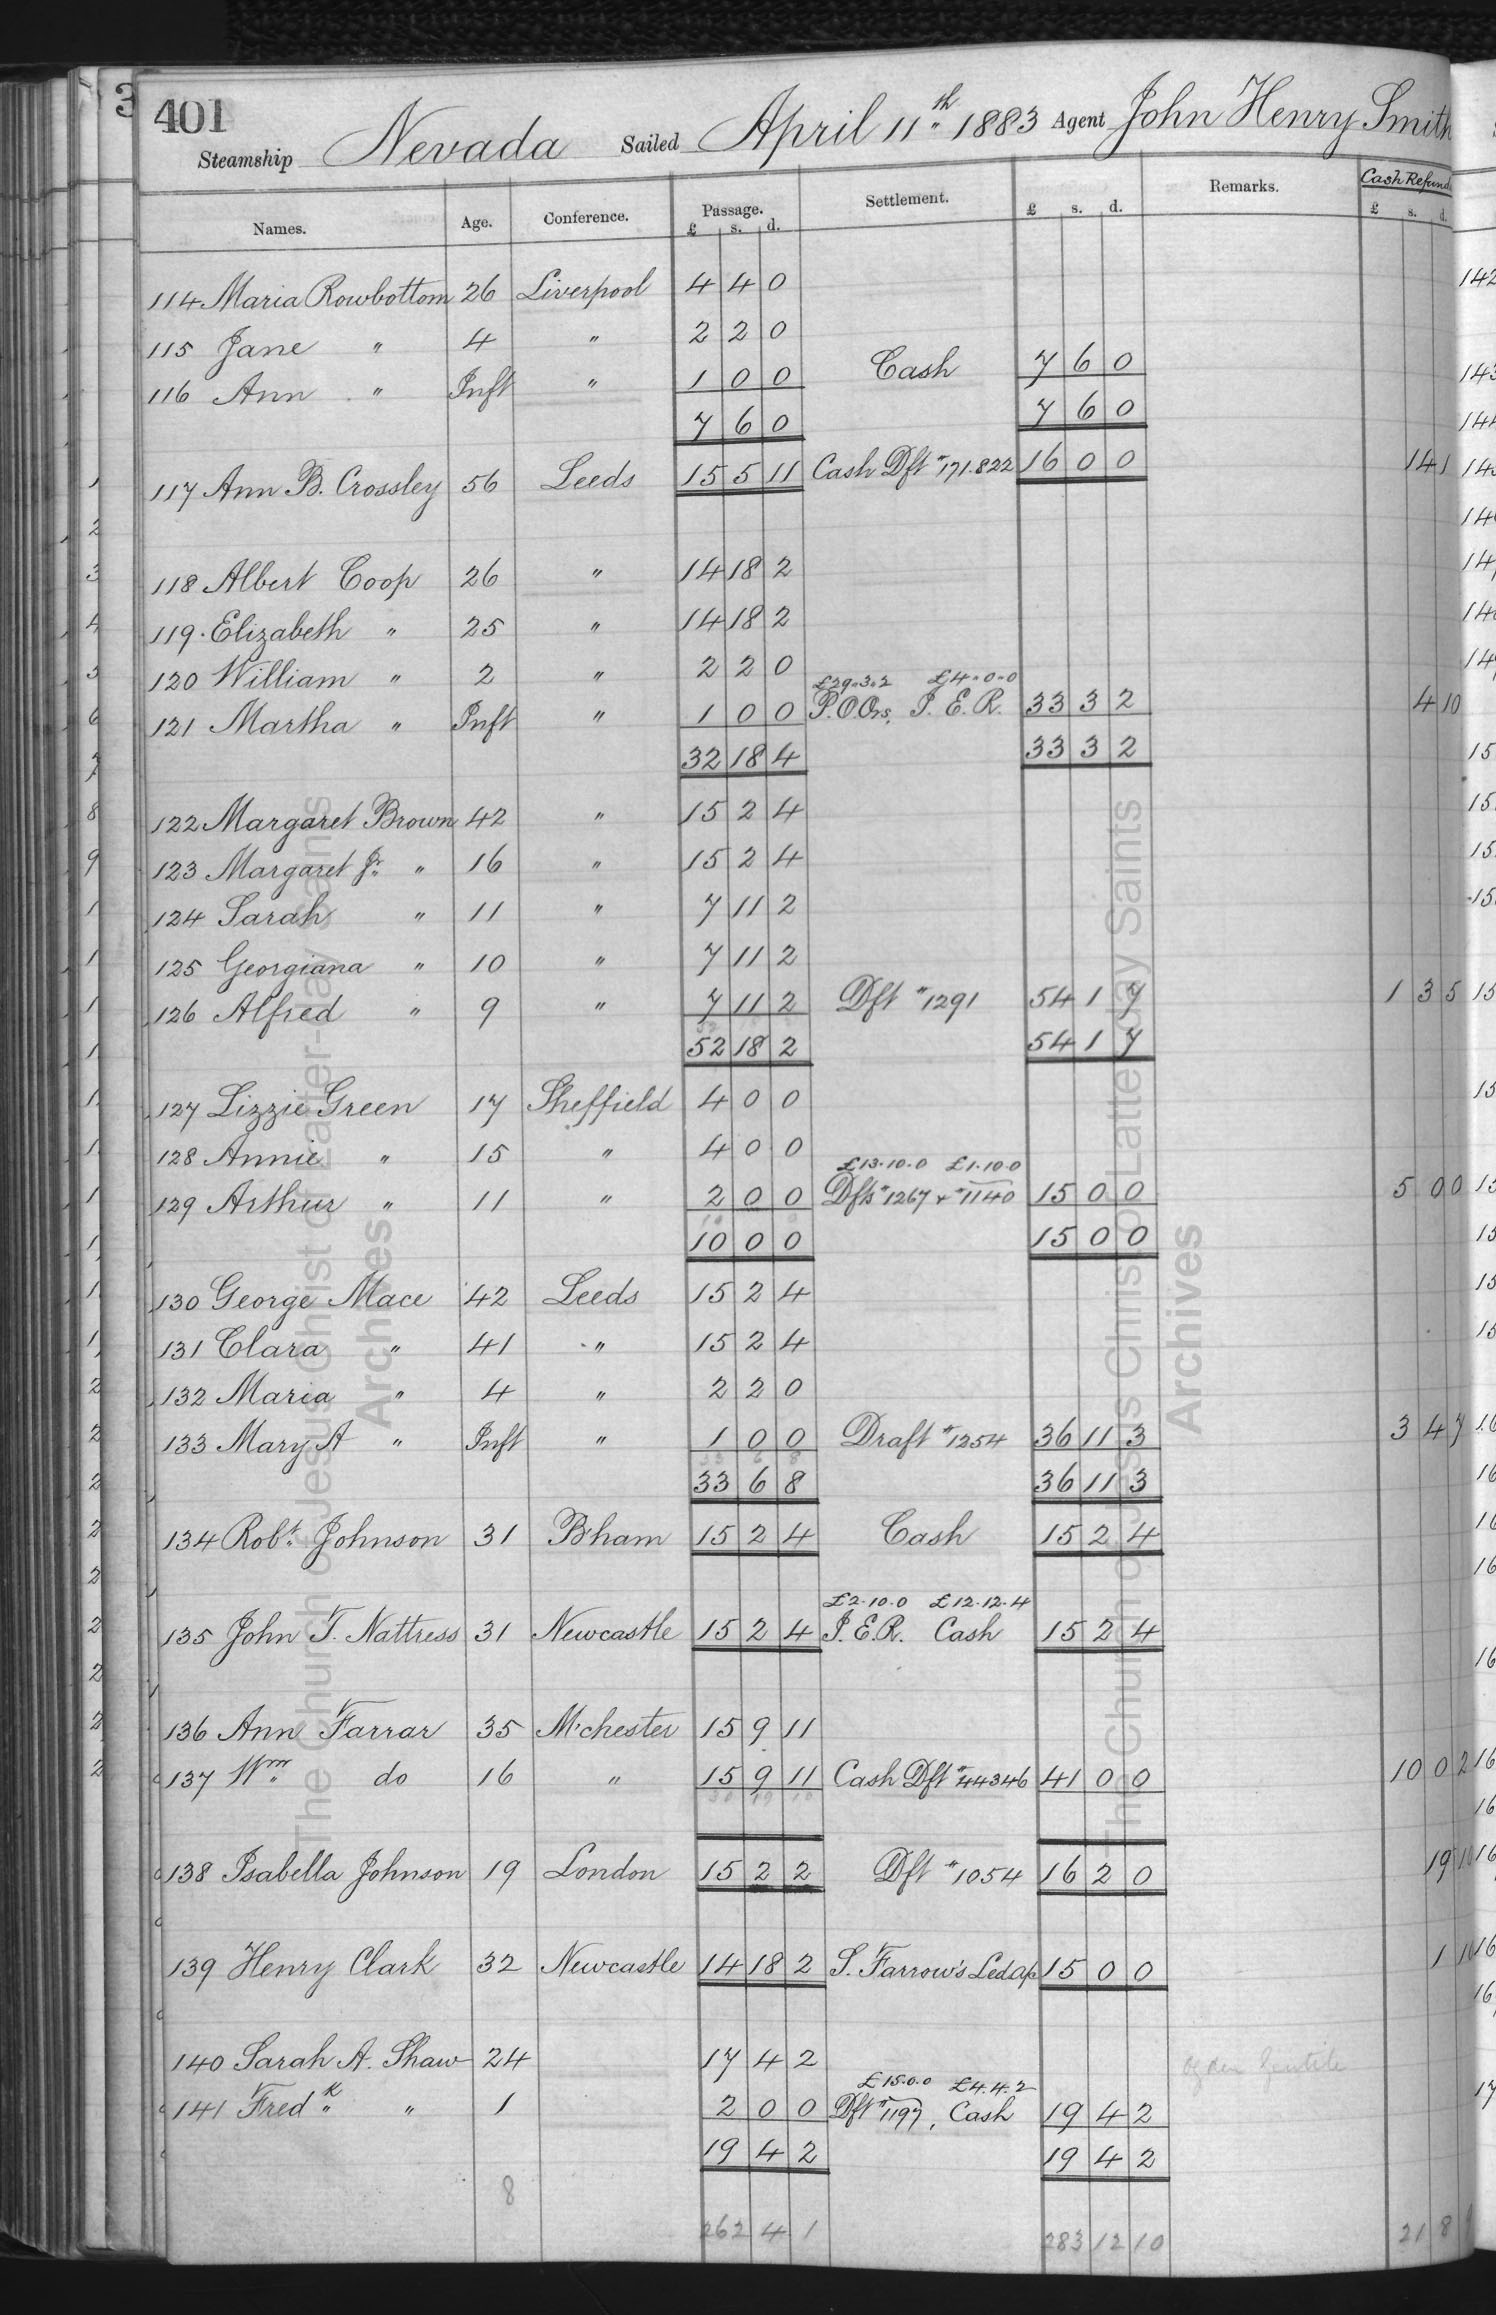 401
Steamship Nevada Sailed April 11th 1883 Agent John Henry Smith
Names. Age. Conference. Passage. £ s. d. Settlement. £ s. d. Remarks. Cash Refund £ s. d.
114 Maria Rowbottom 26 Liverpool 4 4 0
115 Jane " 4 " 2 2 0
116 Ann " Inft " 1 0 0 Cash 7 6 0
7 6 0 7 6 0
117 Ann B. Crossley 56 Leeds 15 5 11 Cash Dft "171.822 16 0 0 14 1
118 Albert Coop 26 " 14 18 2
119. Elizabeth " 25 " 14 18 2
120 William " 2 " 2 2 0
£29.3.2 £4.0.0
121 Martha " Inft " 1 0 0 P.O.Ors, I.E.R. 33 3 2 4 10
32 18 4 33 3 2
122 Margaret Brown 42 " 15 2 4
123 Margaret Jr. " 16 " 15 2 4
124 Sarah " 11 " 7 11 2
125 Georgiana " 10 " 7 11 2
126 Alfred " 9 " 7 11 2 Dft "1291 54 1 7 1 3 5
52 18 2 54 1 7
127 Lizzie Green 17 Sheffield 4 0 0
128 Annie " 15 " 4 0 0
£13.10.0 £1.10.0
129 Arthur " 11 " 2 0 0 Dfts "1267 + "1140 15 0 0 5 0 0
10 0 0 15 0 0
130 George Mace 42 Leeds 15 2 4
131 Clara " 41 " 15 2 4
132 Maria " 4 " 2 2 0
133 Mary A " Inft " 1 0 0 Draft "1254 36 11 3 3 4 7
33 6 8 36 11 3
134 Robt. Johnson 31 B'ham 15 2 4 Cash 15 2 4
£2.10.0 £12.12.4
135 John T. Nattress 31 Newcastle 15 2 4 I.E.R. Cash 15 2 4
136 Ann Farrar 35 M'chester 15 9 11
137 Wm. do 16 " 15 9 11 Cash Dft "44346 41 0 0 10 0 2
30 19 10
138 Isabella Johnson 19 London 15 2 2 Dft "1054 16 2 0 19 10
139 Henry Clark 32 Newcastle 14 18 2 S. Farrow's Led a/c 15 0 0 1 10
140 Sarah A. Shaw 24 17 4 2
£15.0.0 £4.4.2
141 Fredk. " 1 2 0 0 Dft "1197, Cash 19 4 2
19 4 2 19 4 2
8
262 4 1 283 12 10 21 8
The Church of Jesus Christ of Latter-day Saints
Archives
The Church of Jesus Christ of Latter-day Saints
Archives